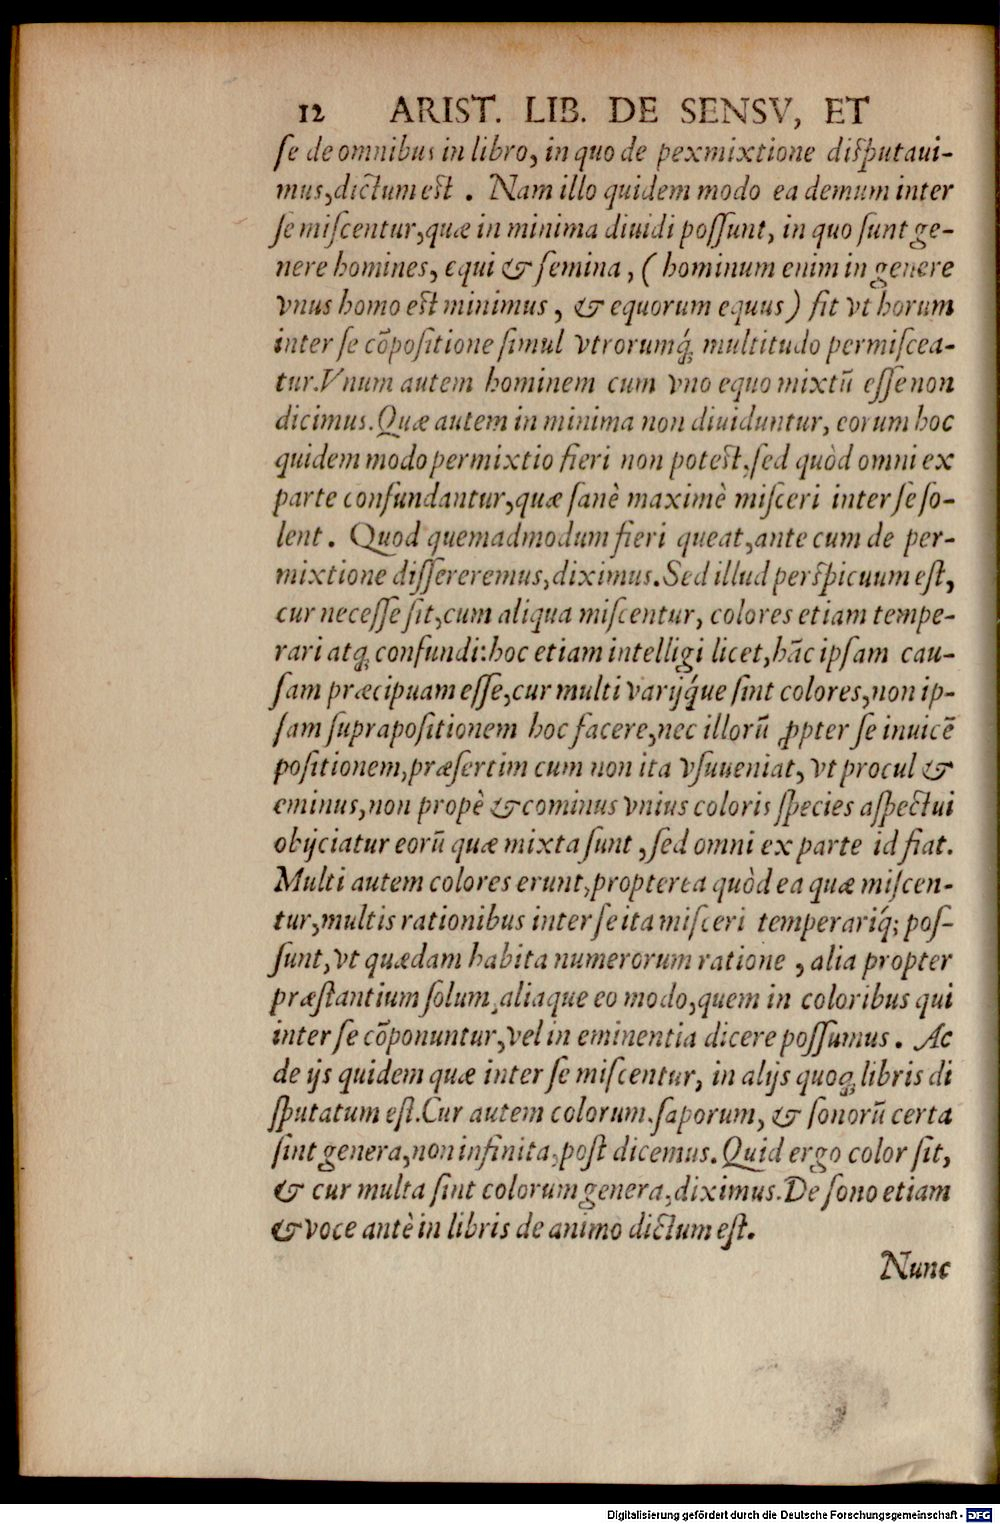 12 ARIST. LIB. DE SENSV, ET
se de omnibus in libro, in quo de pexmixtione disputaui-
mus, dictum est. Nam illo quidem modo ea demum inter
se miscentur, quæ in minima diuidi possunt, in quo sunt ge-
nere homines, equi & semina, (hominum enim in genere
vnus homo est minimus, & equorum equus) fit vt horum
inter se cõpositione simul vtrorumq́; multitudo permiscea-
tur. Vnum autem hominem cum vno equo mixtũ esse non
dicimus. Quæ autem in minima non diuiduntur, eorum hoc
quidem modo permixtio fieri non potest, sed quòd omni ex
parte confundantur, quæ sanè maximè misceri inter se so-
lent. Quod quemadmodum fieri queat, ante cum de per-
mixtione dissereremus, diximus. Sed illud perspicuum est,
cur necesse sit, cum aliqua miscentur, colores etiam tempe-
rari atq; confundi: hoc etiam intelligi licet, hãc ipsam cau-
sam præcipuam esse, cur multi varijq́ue sint colores, non ip-
sam suprapositionem hoc facere, nec illorũ ꝓpter se inuicẽ
positionem, præsertim cum non ita vsuueniat, vt procul &
eminus, non propè & cominus vnius coloris species aspectui
obijciatur eorũ quæ mixta sunt, sed omni ex parte id fiat.
Multi autem colores erunt, propterea quòd ea quæ miscen-
tur, multis rationibus inter se ita misceri temperariq́; pos-
sunt, vt quædam habita numerorum ratione, alia propter
præstantium solum, aliaque eo modo, quem in coloribus qui
inter se cõponuntur, vel in eminentia dicere possumus. Ac
de ijs quidem quæ inter se miscentur, in alijs quoq; libris di
sputatum est. Cur autem colorum. saporum, & sonorũ certa
sint genera, non infinita, post dicemus. Quid ergo color sit,
& cur multa sint colorum genera, diximus. De sono etiam
& voce antè in libris de animo dictum est.
Nunc
Digitalisierung gefördert durch die Deutsche Forschungsgemeinschaft - DFG